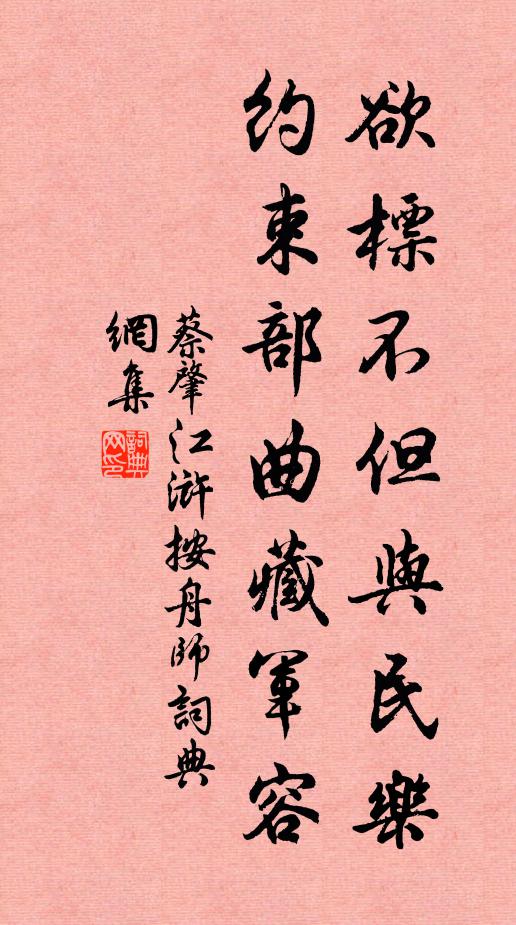 欲標不但與民樂
約束部曲藏軍容
蔡肇江滸按舟師詞典
網集
詞典网印